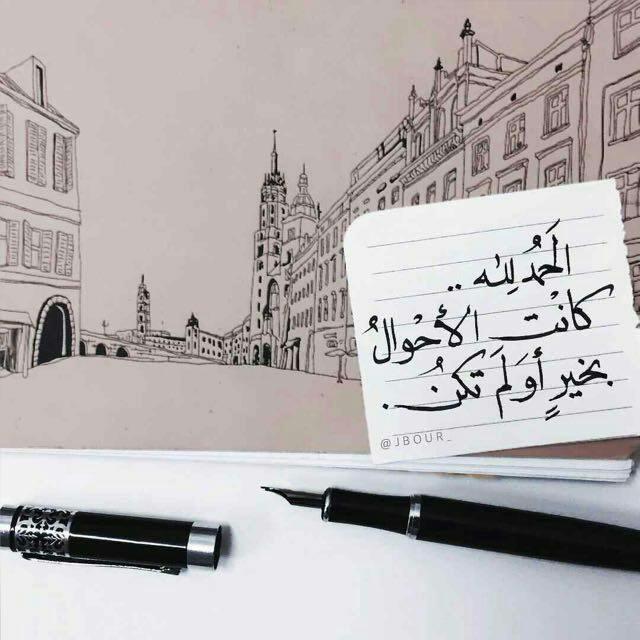 الحَمدُ لِلّٰه ..
كانَت الأحْوالُ
بخيرٍ أوَ لَم تَكنُ .
@JBOUR_